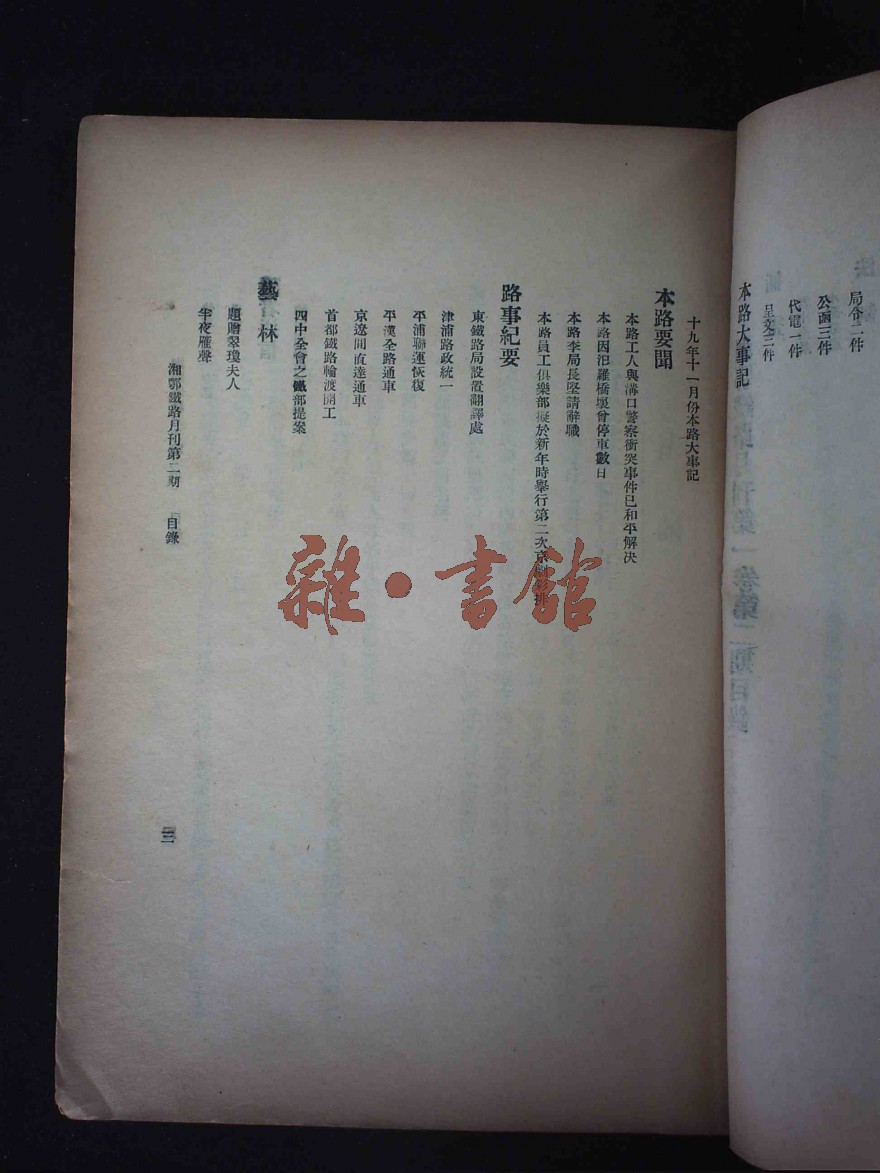 局令二件
公函三件
代電一件
呈文三件
本路大事記
十九年十一月份本路大事記
本路要聞
本路工人與溝口警察衝突事件已和平解決
本路因汨羅橋壞曾停車數日
本路李局長堅請辭職
本路員工俱樂部擬於新年時舉行第二次京劇彩排
路事紀要
東鐵路局設置翻譯處
津浦路政統一
平浦聯運恢復
平漢全路通車
京遼間直達通車
首都鐵路輪渡開工
四中全會之鐵部提案
藝林
題贈翠瓊夫人
半夜雁聲
湘鄂鐵路月刊第二期 目錄
三
雜·書館